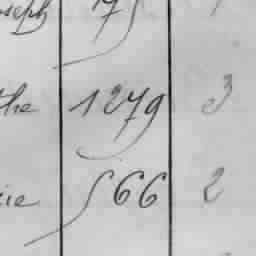 oseph 17
the 1279 3
ie 566 2